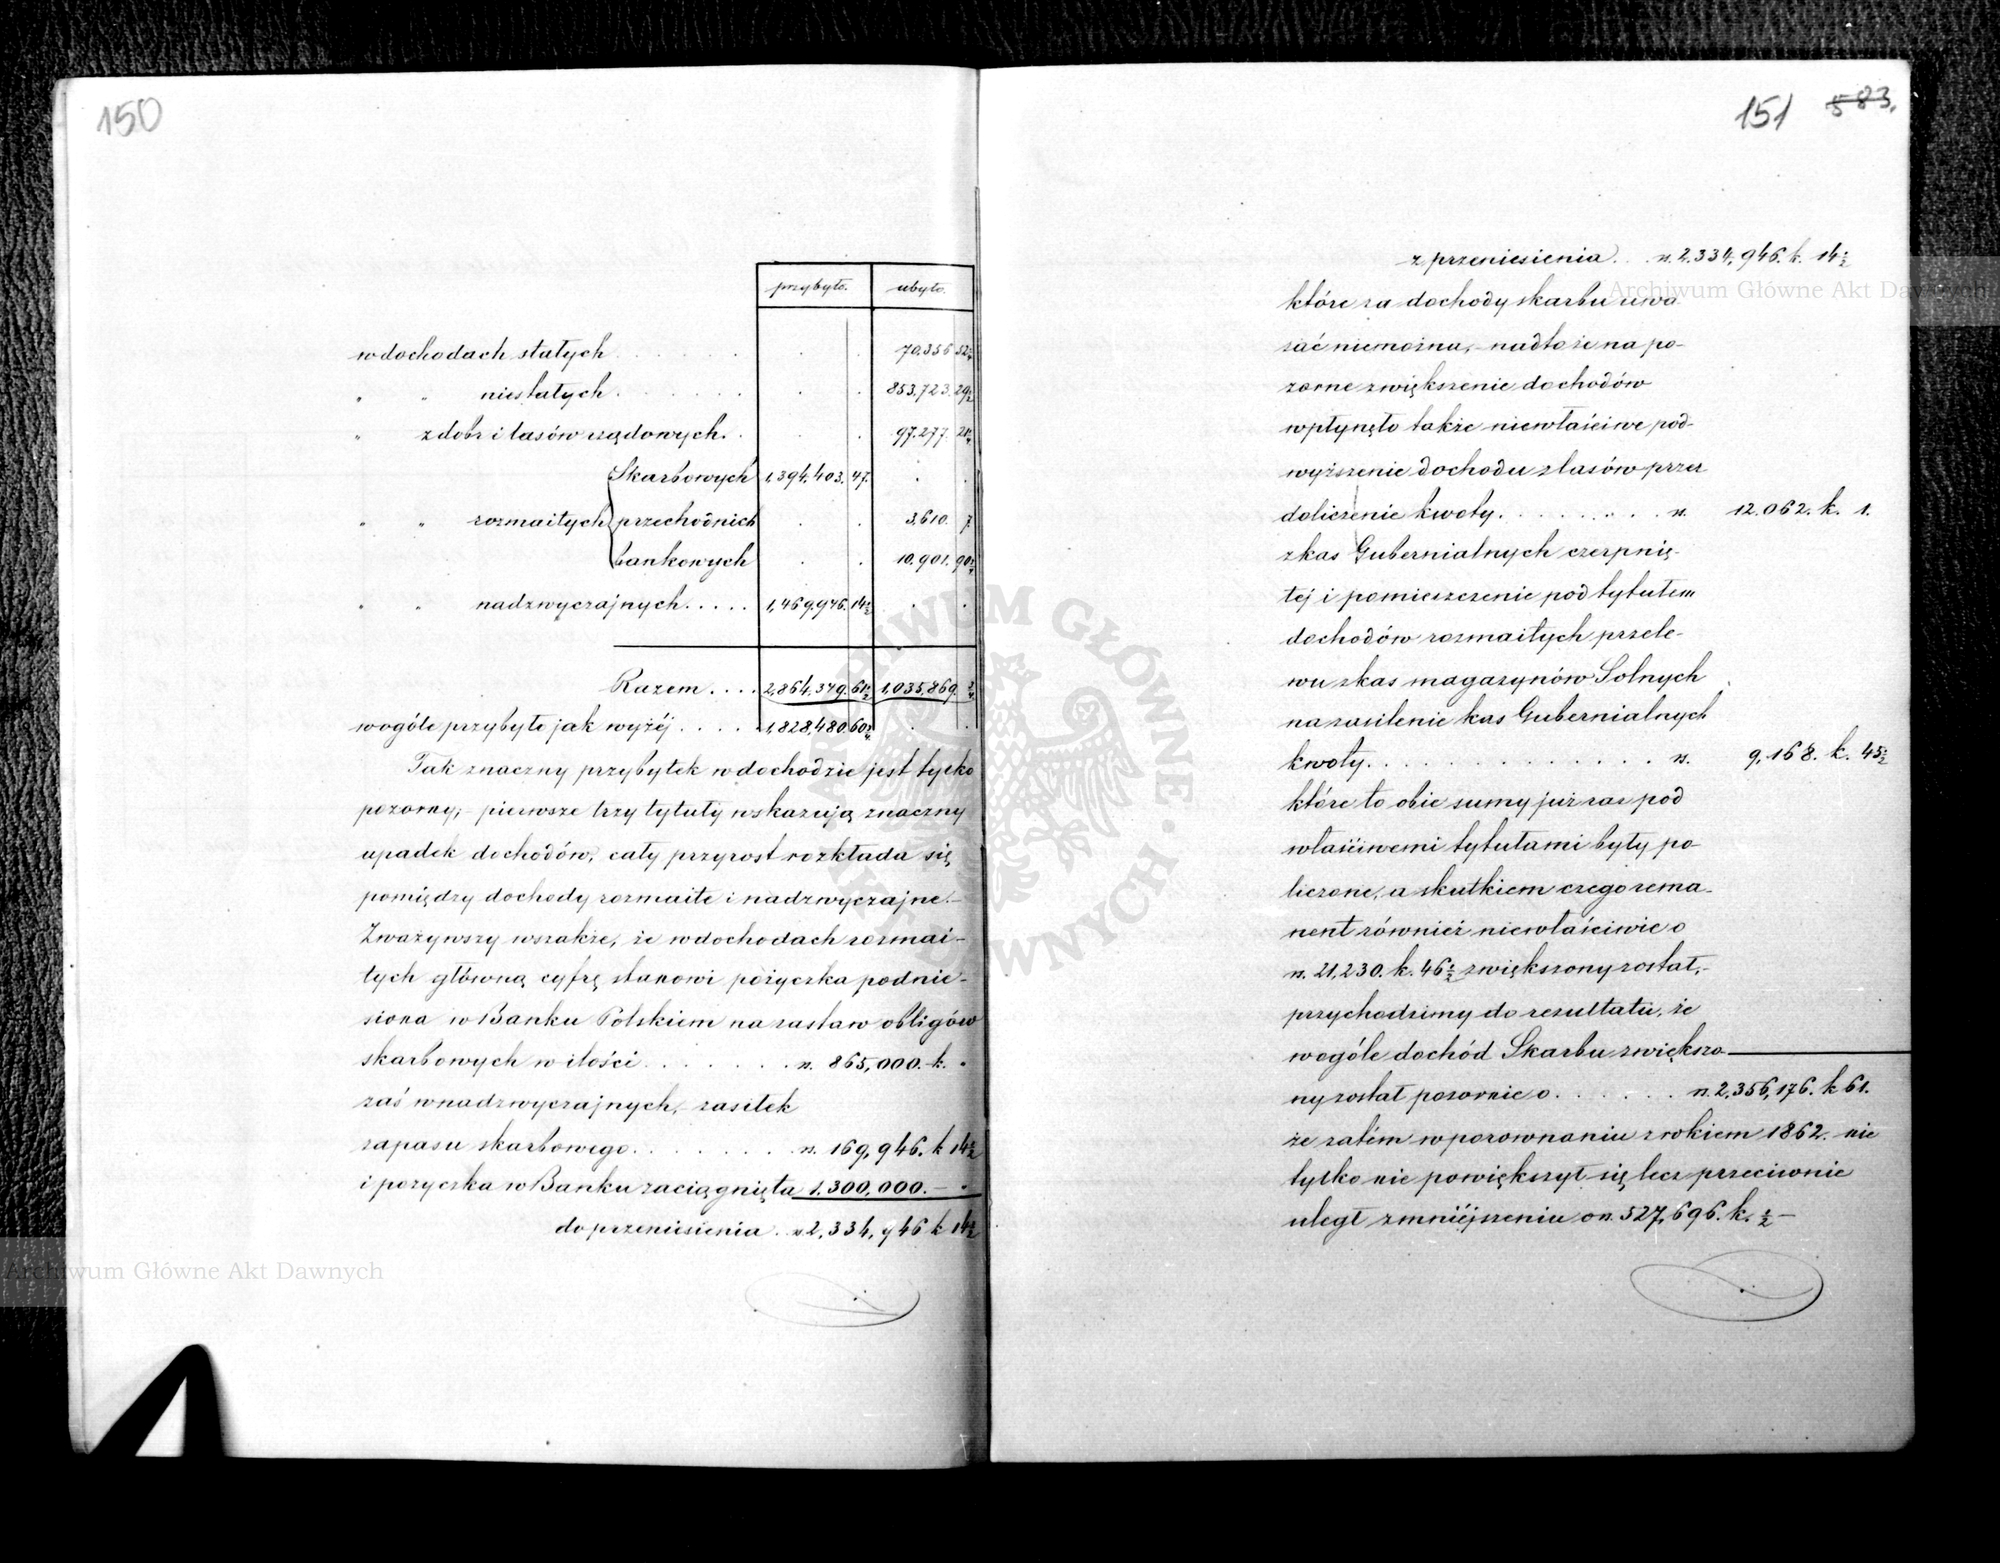 150
przybyło. ubyło.
w dochodach stałych . . . . . . 70.356
" " niestałych . . . . . . 853,723. 29½
" z dobr i lasów rządowych. . 97.277
Skarbowych 1,394,403. 47.
" " rozmaitych przechodnich 3,610. 7.
bankowych 10.901.
" " nadzwyczajnych . . . . . 1,469,946. 14½
Razem . . . . 2,864,349. 61½ 1,035,869.
wogóle przybyło jak wyżéj . . . . 1,828,480.
Tak znaczny przybytek w dochodzie jest tylko
pozorny; - pierwsze trzy tytuły wskazują znaczny
upadek dochodów, cały przyrost rozkłada się
pomiędzy dochody rozmaite i nadzwyczajne.-
Zważywszy wszakże, że w dochodach rozmai-
tych główną cyfrę stanowi pożyczka podnie-
siona w Banku Polskiem na zastaw obligów
skarbowych w ilości . . . . . . . rs. 865,000. k. "
zaś w nadzwyczajnych, zasiłek
zapasu skarbowego . . . . . . . rs. 169,946. k 14½
i pożyczka w Banku zaciągnięta 1,300,000. — "
do przeniesienia . rs 2,334,946 k 14½
151 583.
z przeniesienia . . rs. 2.334,946. k. 14½
które za dochody skarbu uwa
żać niemożna, - nadto że na po-
zorne zwiększenie dochodów
wpłynęło także niewłaściwe pod-
wyższenie dochodu z lasów przez
doliczenie kwoty . . . . . . . . rs. 12.062. k. 1.
z kas Gubernialnych czerpnię-
tej i pomieszczenie pod tytułem
dochodów rozmaitych przele-
wu z kas magazynów Solnych
na zasilenie kas Gubernialnych
kwoty . . . . . . . . . . . . . rs. 9,168. k. 45½
które to obie sumy już raz pod
właściwemi tytułami były po-
liczone, a skutkiem czego rema-
nent również niewłaściwie o
rs. 21,230. k. 46½ zwiększony został, -
przychodzimy do rezultatu, że
wogóle dochód Skarbu zwiększo
ny został pozornie o . . . . . . rs. 2,356,176. k 61.
że zatém w porownaniu z rokiem 1862. nie
tylko nie powiększył się lecz przeciwnie
uległ zmniéjszeniu o rs. 527,696. k. ½ —
ARCHIWUM GŁÓWNE AKT DAWNYCH
Archiwum Główne Akt Dawnych
Archiwum Główne Akt Dawnych